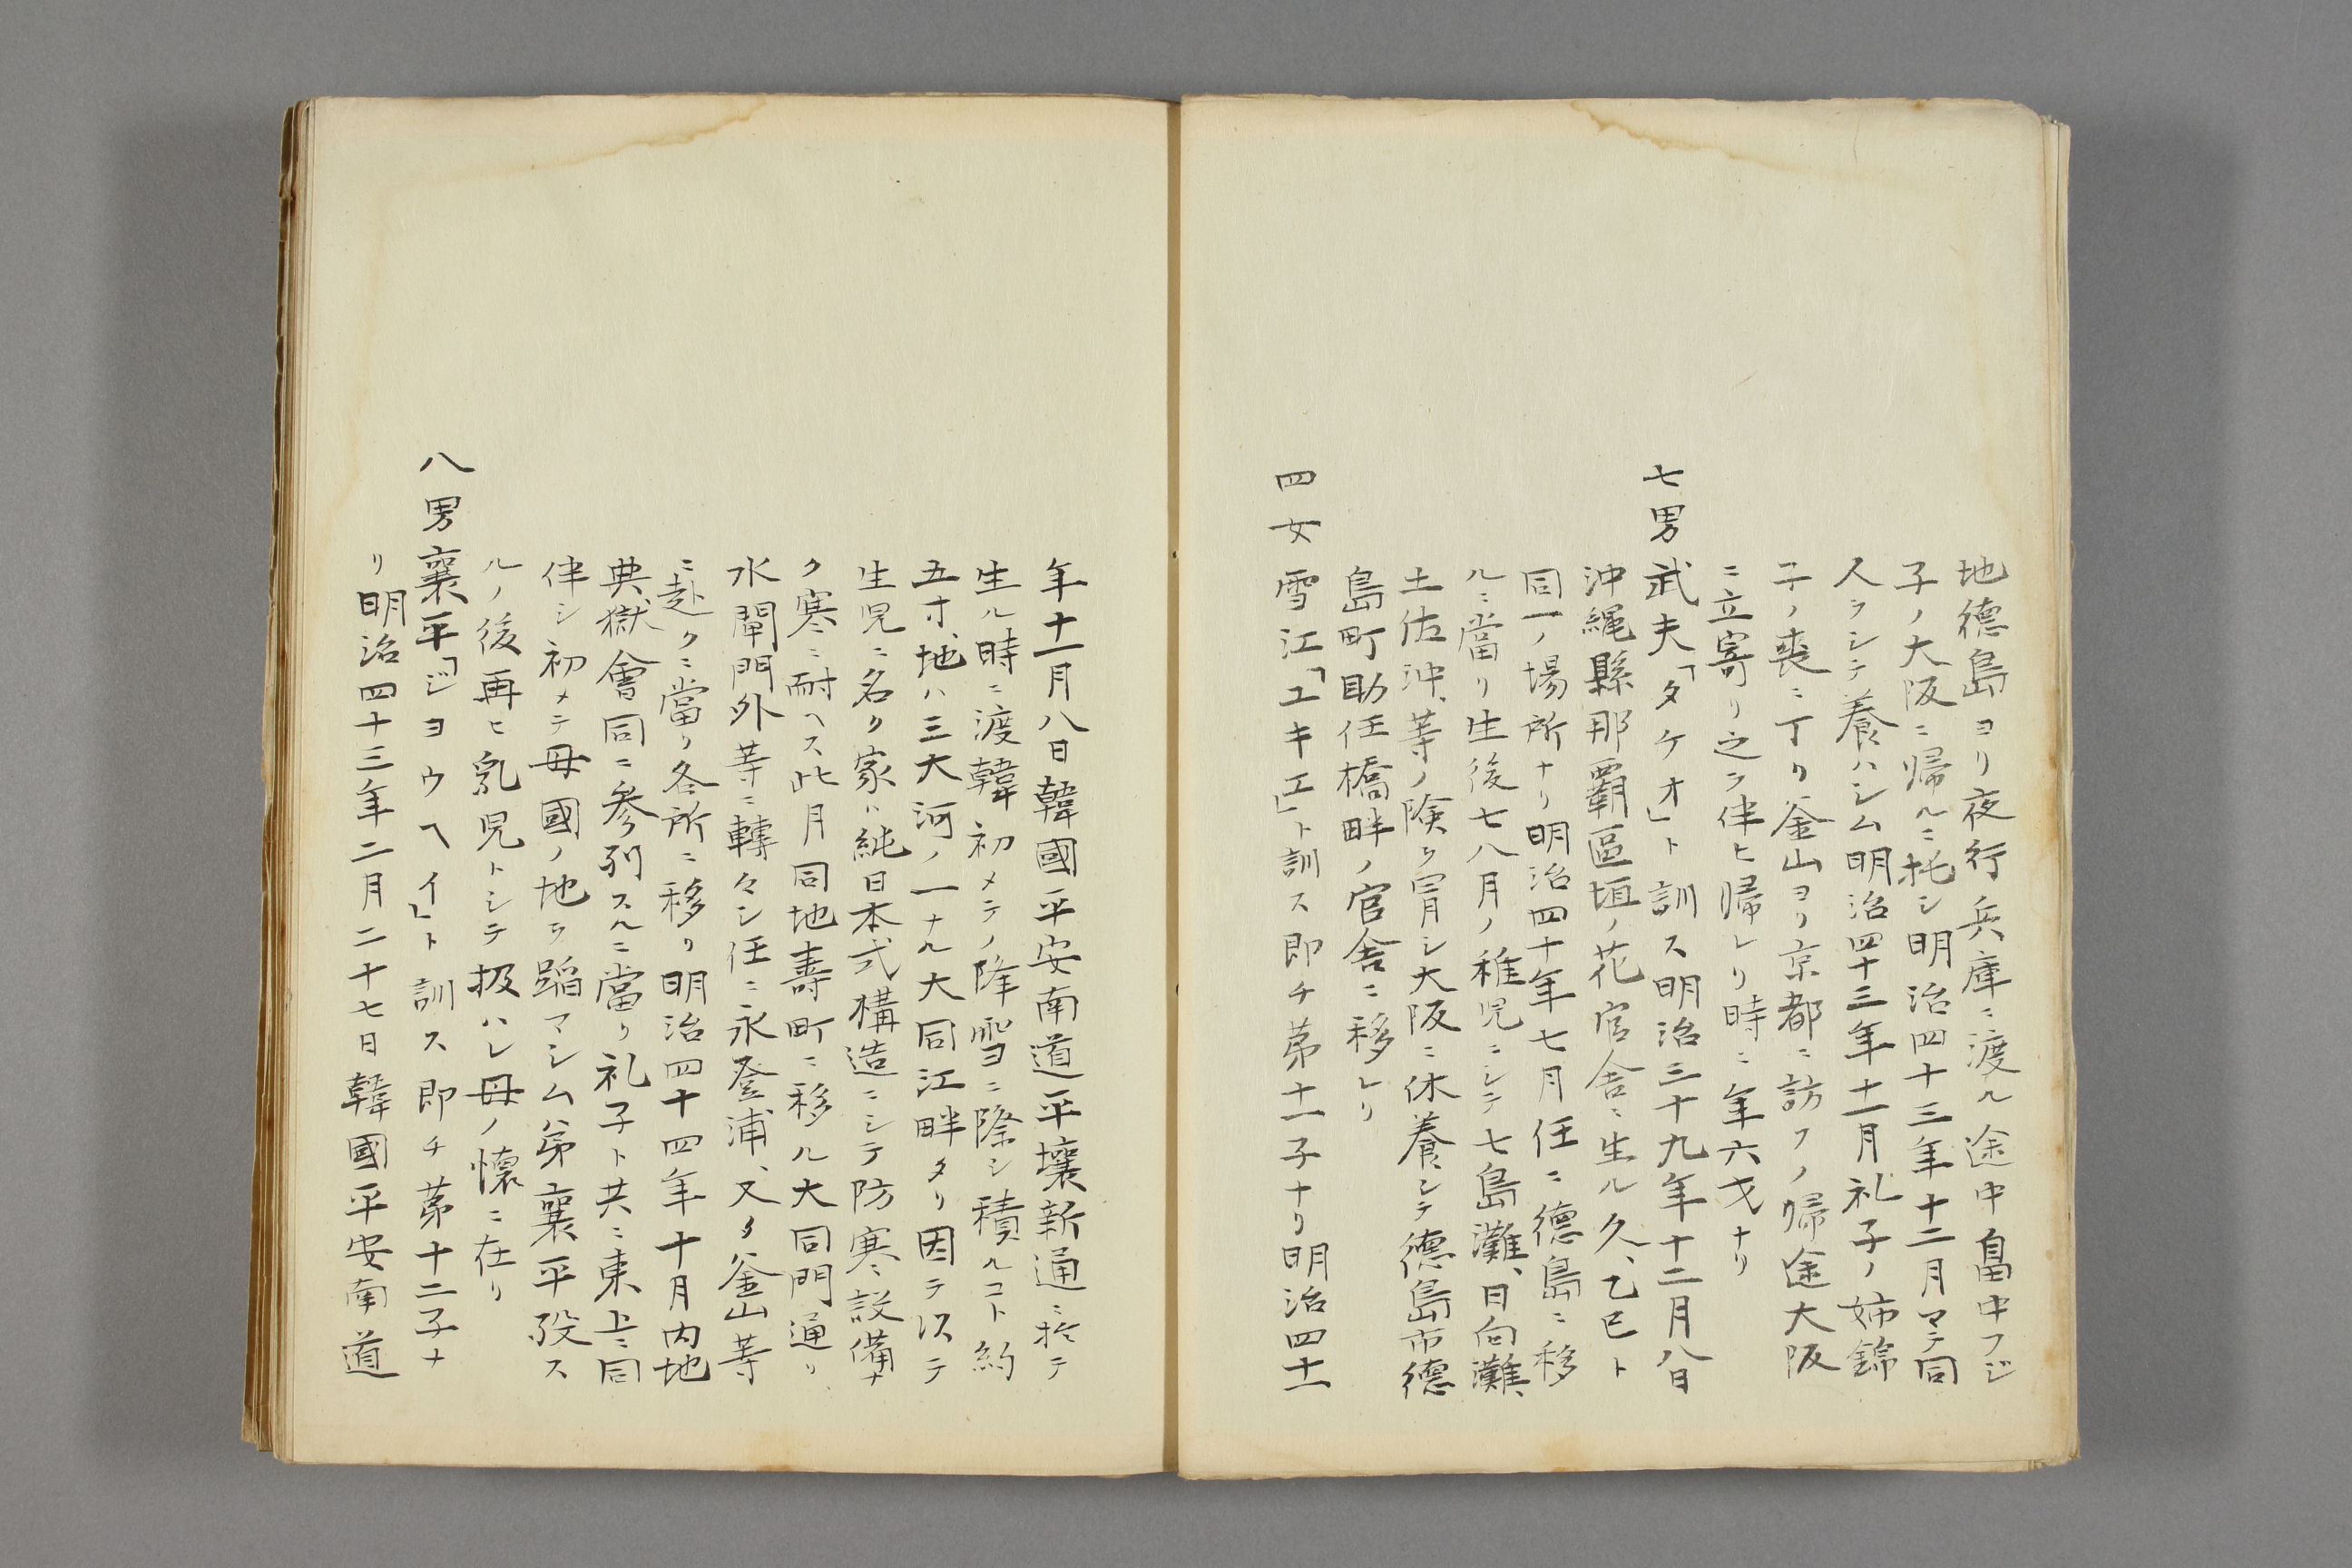 地德島ヨリ夜行兵庫ニ渡ル途中畠中フジ
子ノ大阪ニ帰ルニ托シ明治四十三年十二月マテ同
人ヲシテ養ハシム明治四十三年十一月礼子ノ姉錦
子ノ喪ニ丁リ釜山ヨリ京都ニ訪フノ帰途大阪
ニ立寄リ之ヲ伴ヒ帰レリ時ニ年六才ナリ
七男武夫「タケオ」ト訓ス明治三十九年十二月八日
沖縄縣那覇區垣ノ花官舎ニ生ル久、乙巳ト
同一ノ場所ナリ明治四十年七月任ニ德島ニ移
ルニ當リ生後七八月ノ稚児ニシテ七島灘、日向灘、
土佐沖、等ノ険ヲ冒シ大阪ニ休養シテ德島市德
島町助任橋畔ノ官舎ニ移レリ
四女雪江「ユキエ」ト訓ス即チ第十一子ナリ明治四十一
年十一月八日韓國平安南道平壤新通ニ於テ
生ル時ニ渡韓初メテノ降雪ニ際シ積ルコト約
五寸、地ハ三大河ノ一ナル大同江畔タリ因テ以テ
生児ニ名ク家ハ純日本式構造ニシテ防寒設備ナ
ク寒ニ耐ヘス此月同地壽町ニ移ル大同門通リ、
水闡門外等ニ轉々シ任ニ永登浦、又タ釜山等
ニ赴クニ當リ各所ニ移リ明治四十四年十月内地
典獄會同ニ参列スルニ當リ礼子ト共ニ東上ニ同
伴シ初メテ母國ノ地ヲ蹈マシム弟襄平歿ス
ルノ後再ヒ乳児トシテ扱ハレ母ノ懐ニ在リ
八男襄平「ジヨウヘイ」ト訓ス即チ第十二子ナ
リ明治四十三年二月二十七日韓國平安南道